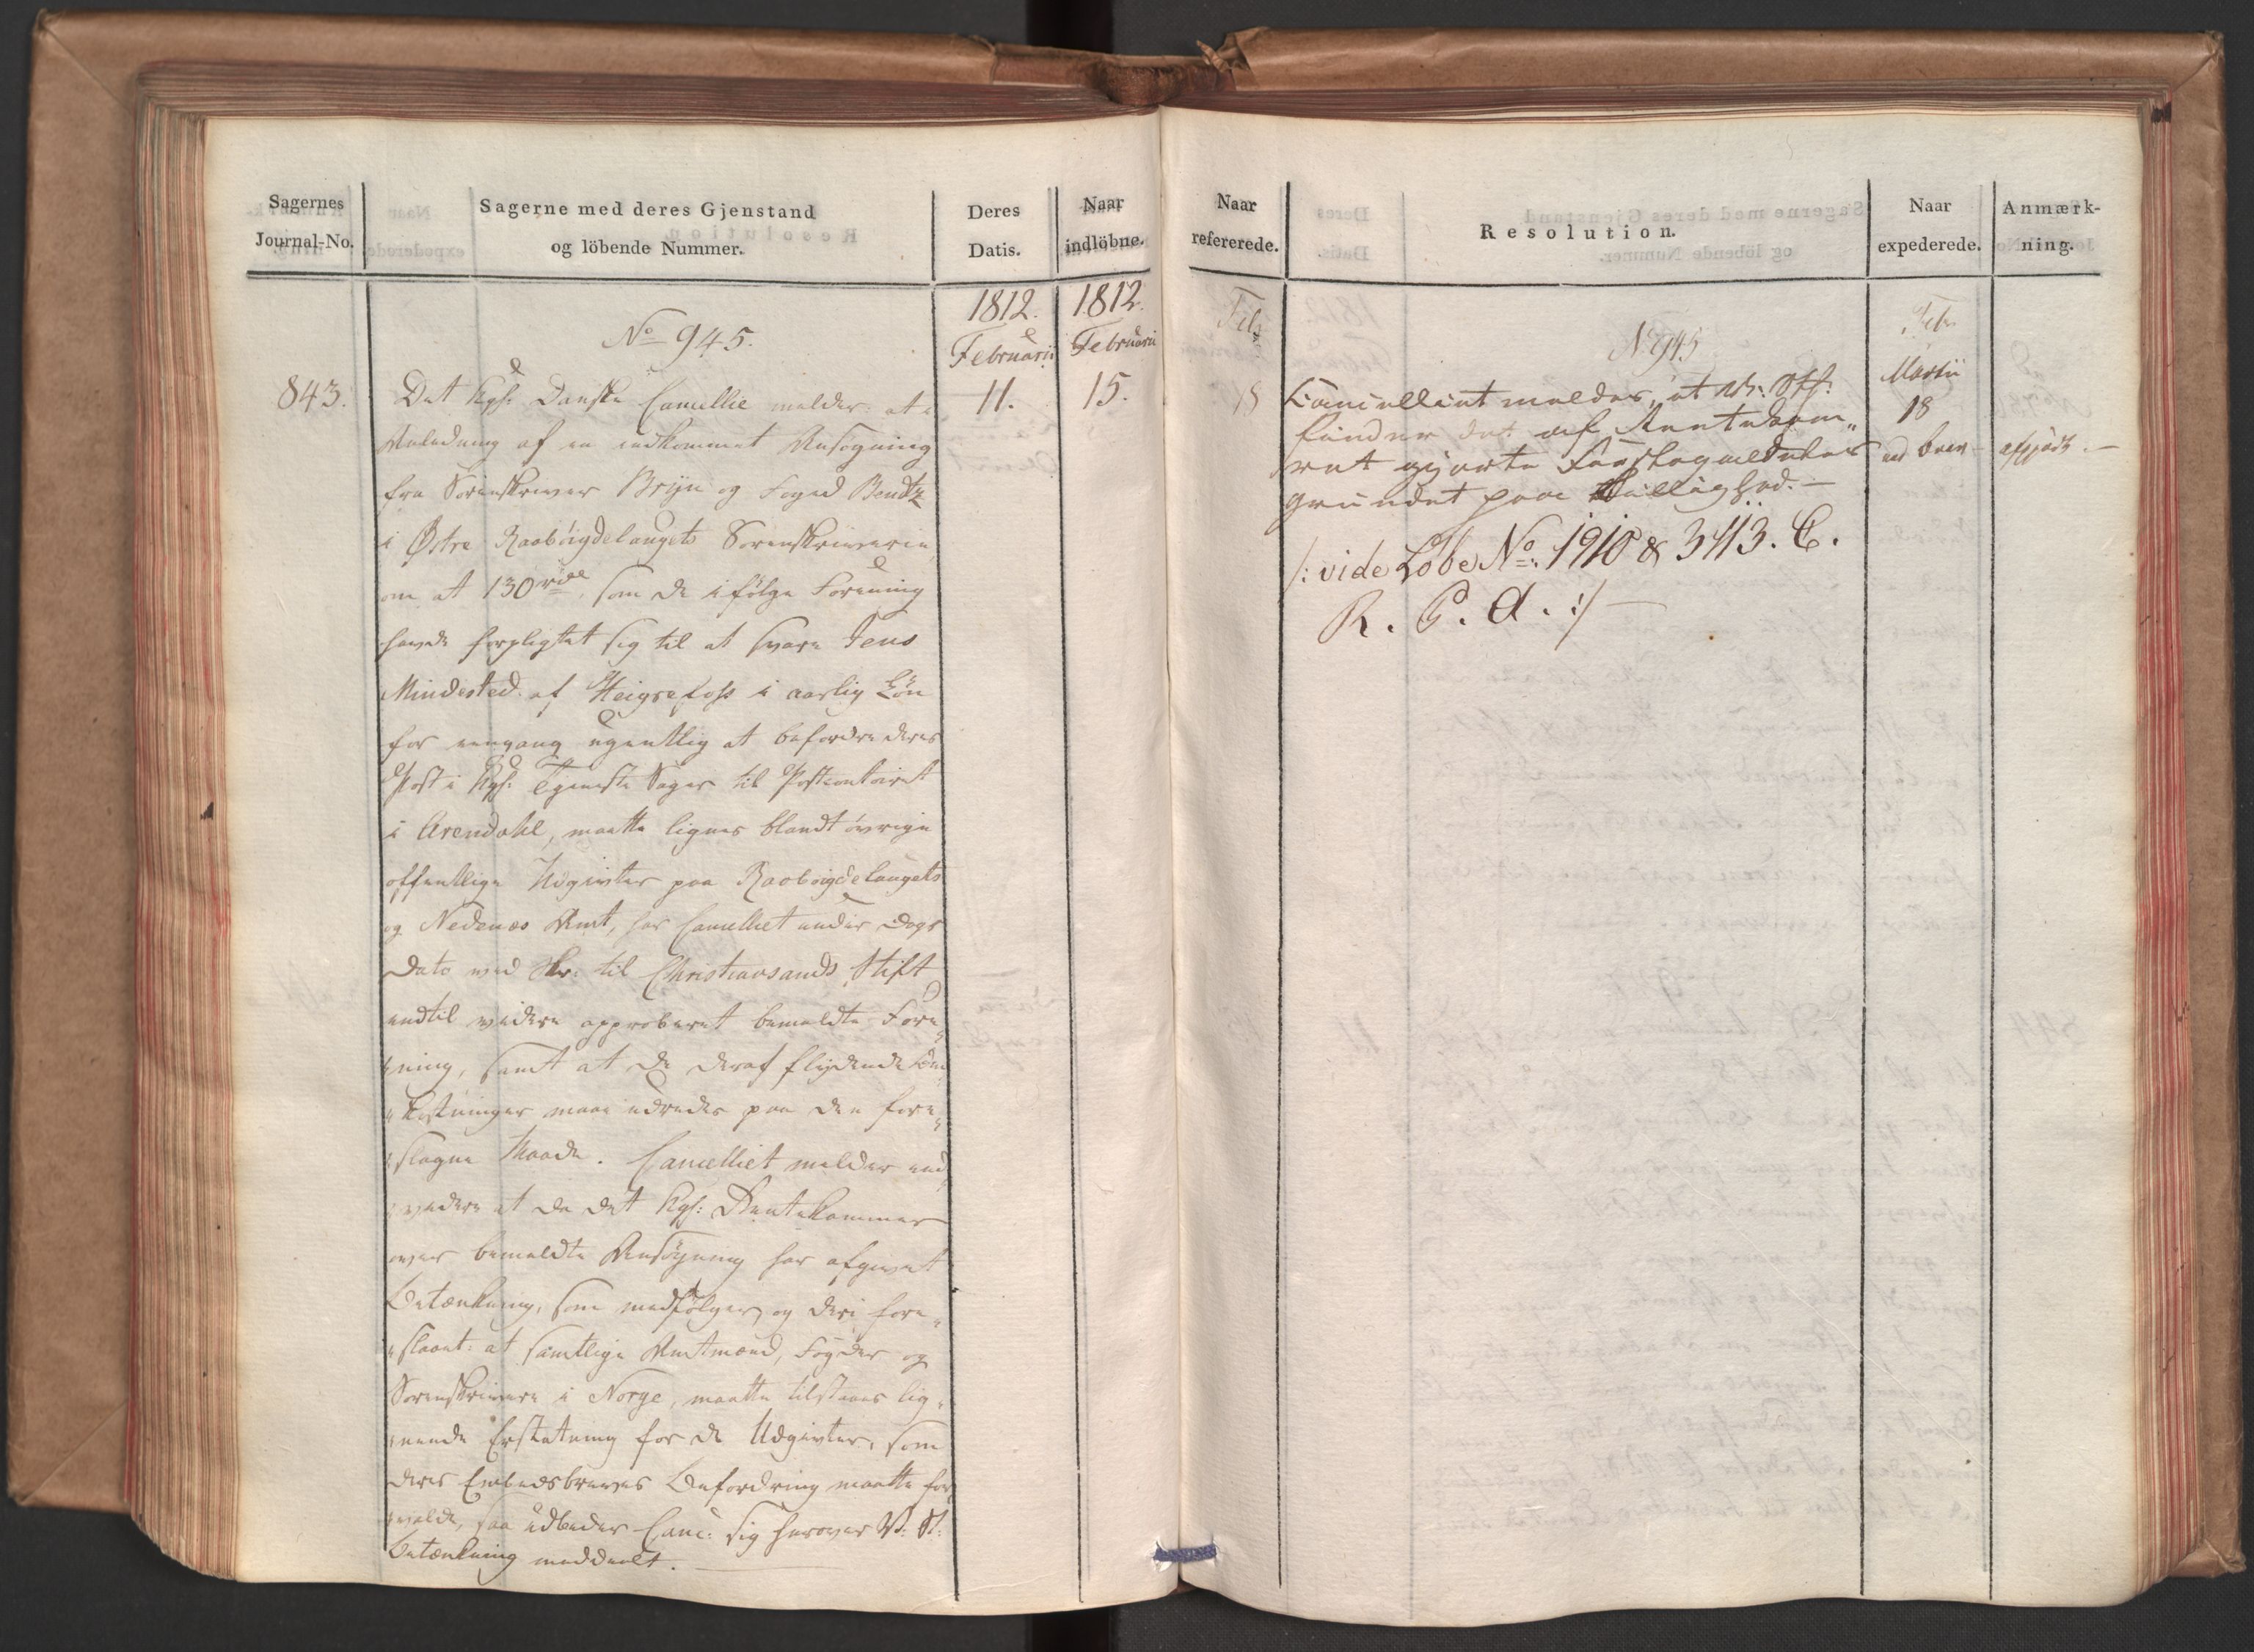 Sagernes
Journal-No.
Sagerne med deres Gjenstand
og löbende Nummer.
Deres
Datis.
Naar
indlöbne.
1812.
Februarii
11.
1812.
Februarii
15.
No 945.
843.
Det Kgl: Danske Cancellie melder at i
Anledning af en indkommet Ansøgning
fra Sorenskriver Brijn og Foged Bendtz
i Østre Raabÿigdelaugets Sorenskriverie
om at 130 rdl, som de ifølge Forening
havde forpligtet sig til at svare Jens
Mindested af Heigrefoss i aarlig Løn
for eengang ugentlig at befordre deres
Post i Kgl: Tjeneste Sager til Postcontoiret
i Arendahl, maatte lignes blandt øvrige
offentlige Udgivter paa Raaboigdelaugets
og Nedenæs Amt, har Cancelliet under Dags
Dato ved Skr: til Christiansands Stift
indtil videre approberet bemeldte Fore„
„ning, samt at de deraf flydende Om„
„kostninger maae udredes paa den fore„
„slagne Maade. Cancelliet melder end
„videre at da det Kgl: Rentekammer
over bemeldte Ansøgning har afgivet
Betænkning, som medfølger, og deri fore„
„slaaet: at samtlige Amtmænd, Fogder og
Sorenskrivere i Norge, maatte tilstaaes lig„
„nende Erstatning for de Udgivter, som
deres Embedsbreves Befordring maatte for
„volde, saa udbeder Canc: sig herover
Betænkning meddeelt.
Naar
refererede.
Resolution.
Naar
expederede.
Anmærk-
ning.
Febr
18
No 945
Cancelliet meldes, at
finder det af Rentekam„
ret gjorte Forslag
grundet paa Billighed.—
/: vide Løbe No. 1910 & 3413. C.
R. P. A. :/
Febr
Martii
18
ved Brev
afgjort.